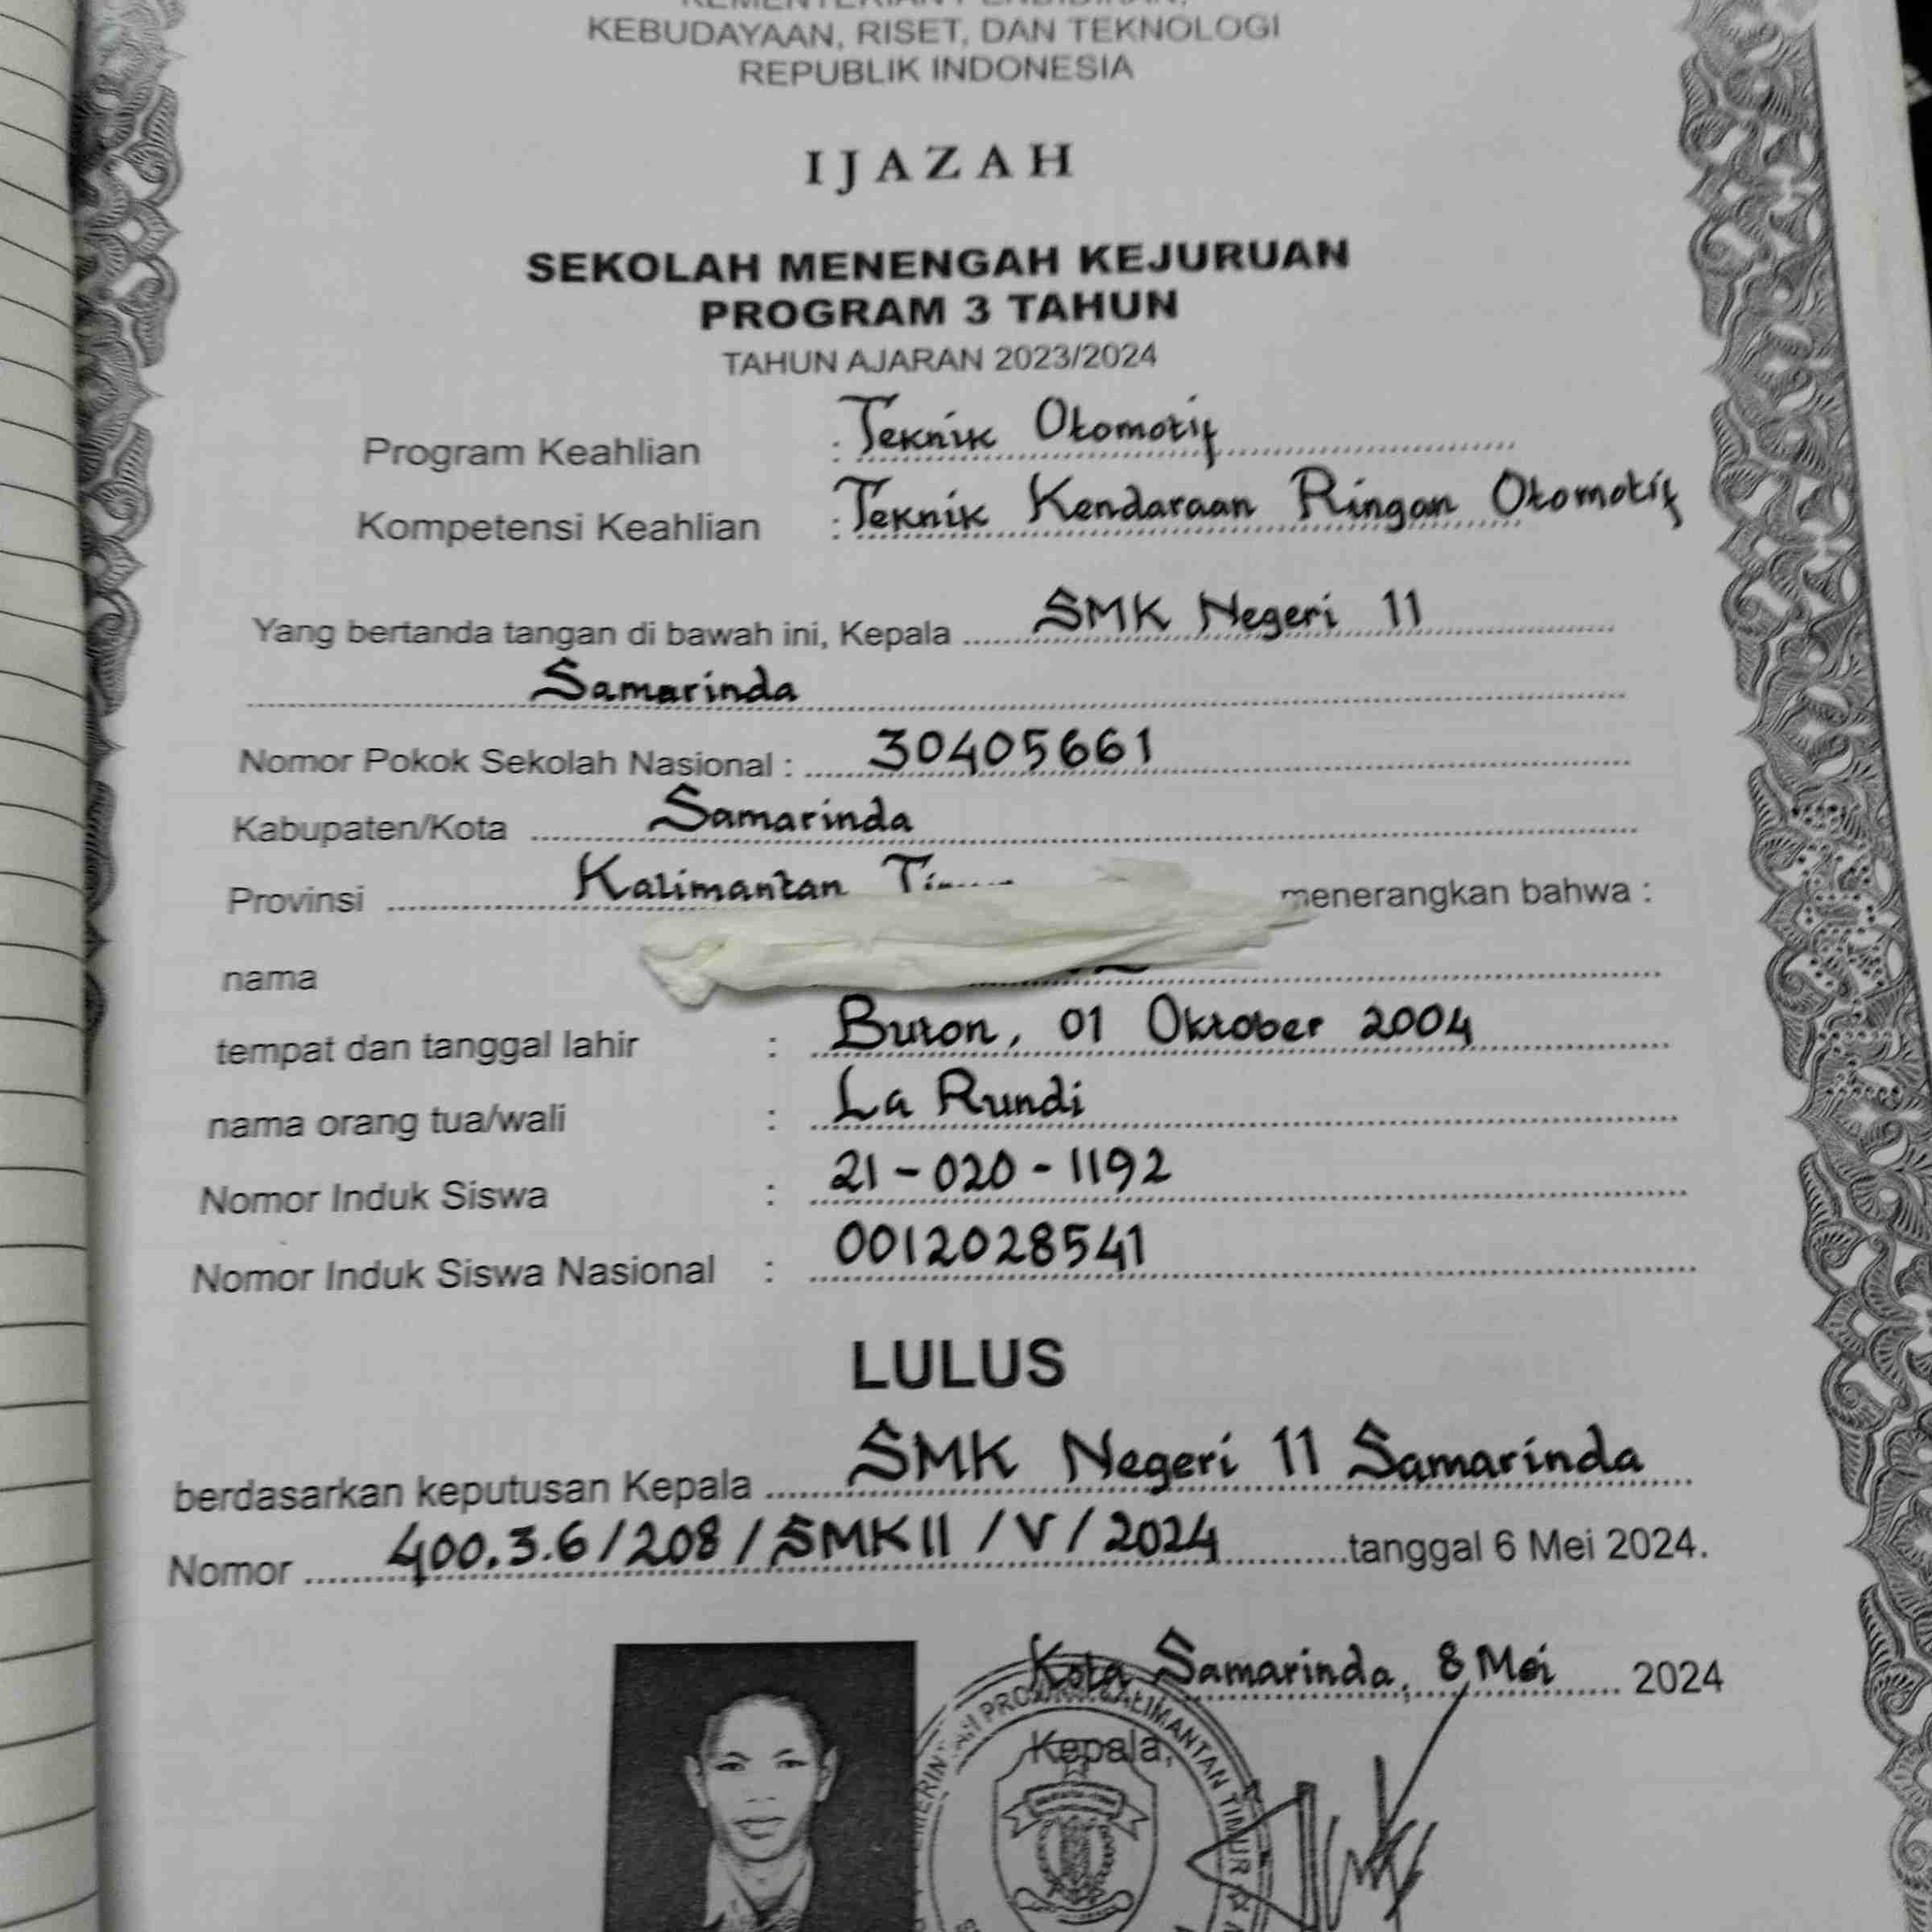 KEBUDAYAAN, RISET, DAN TEKNOLOGI
REPUBLIK INDONESIA
IJAZAH
SEKOLAH MENENGAH KEJURUAN
PROGRAM 3 TAHUN
TAHUN AJARAN 2023/2024
Program Keahlian : Teknik Otomotif
Kompetensi Keahlian : Teknik Kendaraan Ringan Otomotif
Yang bertanda tangan di bawah ini, Kepala SMK Negeri 11
Samarinda
Nomor Pokok Sekolah Nasional : 30405661
Kabupaten/Kota Samarinda
Provinsi Kalimantan menerangkan bahwa :
nama
tempat dan tanggal lahir : Buton, 01 Oktober 2004
nama orang tua/wali : La Rundi
Nomor Induk Siswa : 21-020-1192
Nomor Induk Siswa Nasional : 0012028541
LULUS
berdasarkan keputusan Kepala SMK Negeri 11 Samarinda
Nomor 400.3.6/208/SMK11/V/2024 tanggal 6 Mei 2024.
Kota Samarinda, 8 Mei 2024
Kepala,
KALIMANTAN TIMUR